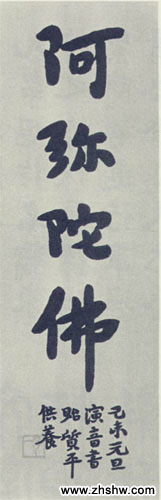 阿弥陀佛
己未元旦
演音書
貽質平
供養
www.zhshw.com